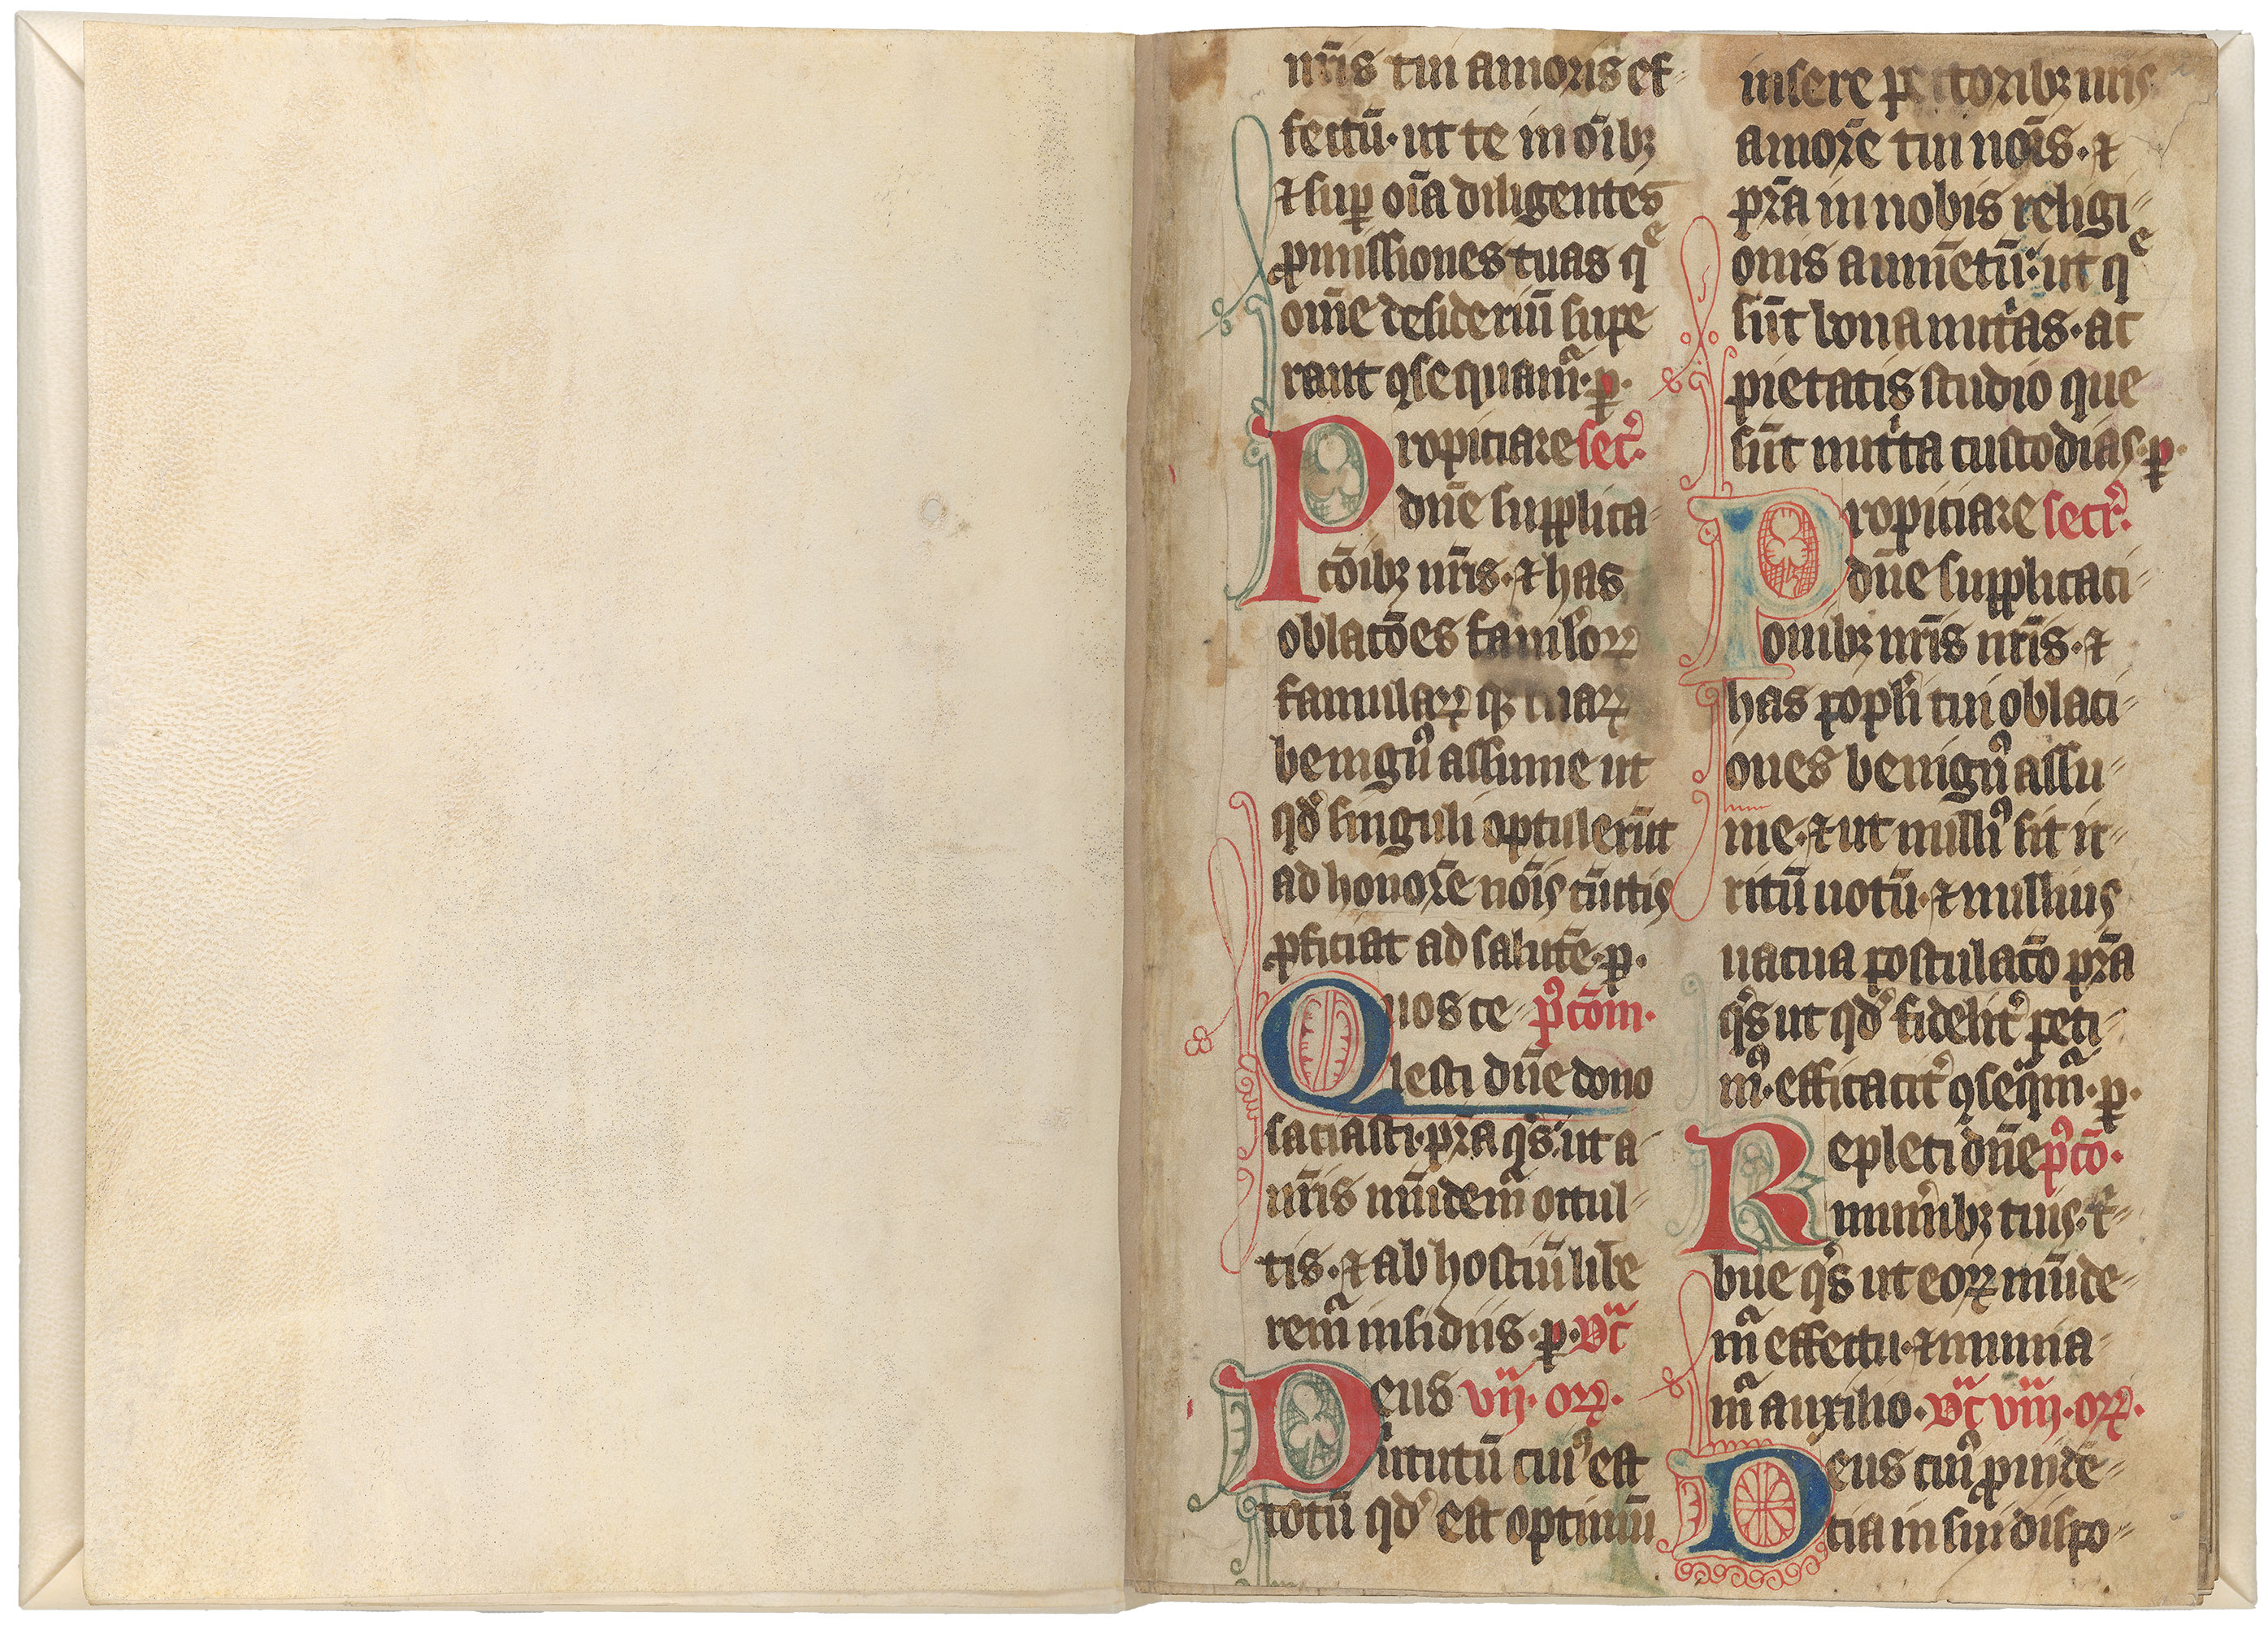 nr̄is tui amoris ef-
fectū· ut te in oībꝫ
⁊ suꝑ oīa diligentes
ꝓmissiones tuas qͤ
om̄e desideriū supe
rant ꝯsequam̄· p·
Propiciare secr̄·
dn̄e supplica-
cōibꝫ nr̄is· ⁊ has
oblacōes famuloꝝ
famulaꝝ qꝫ tuaꝝ
benignꝰ assume ut
qd̕ singuli optulerūt
ad honorē nōis cūctis
ꝓficiat ad salutē· p·
Quos ce- pꝰcōm·
lesti dn̄e dono
saciasti· pr̄a qs̄· ut a
nr̄is mūdem̄ occul-
tis· ⁊ ab hostiū libe
rem̄ insidiis· p· Dc̄
Deus vij· oꝝ·
uirtutū cuiꝰ est
totū qd̕ est optimū
insere pectoribꝫ nr̄is
amorē tui nōis· ⁊
pr̄a in nobis religi-
onis aumētū· ut qͤ
sūt bona nutͥas· ac
pietatis studio que
sūt nutͥta custodias· p·
Propiciare secr̄·
dn̄e supplicaci-
onibꝫ nr̄is nr̄is· ⁊
has popli tui oblaci-
ones benignꝰ assu-
me· ⁊ ut nulliꝰ sit ir-
ritū uotū· ⁊ nullius
uacua postulacō pr̄a
qs̄ ut qd̕ fidelit̕ peti-
mꝰ· efficacit̕ ꝯseqm̄· p·
Repleti dn̄e pꝰcō·
mun̕ibꝫ tuis· tͥ-
bue qs̄ ut eoꝝ mūde-
m̄ effectu· ⁊ munia-
m̄ auxilio· Dc̄ viij· oꝝ·
Deus cuiꝰ ꝓuidē-
cia in sui dispo-